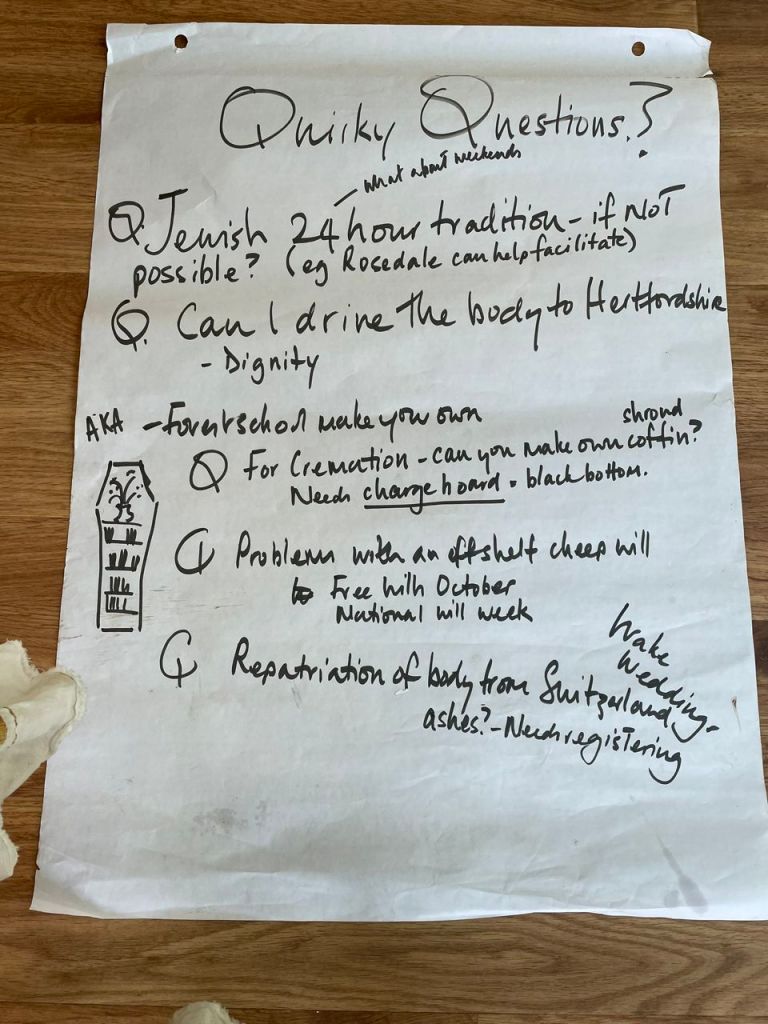 Quirky Questions.?
what about weekends
Q. Jewish 24 hour tradition - if NOT
possible? (eg Rosedale can help facilitate)
Q. Can I drive the body to Hertfordshire
- Dignity
AKA - Forest school make your own
shroud
Q For Cremation - can you make own coffin?
Need charge board - black bottom.
Q Problem with an off shelf cheep will
Free will October
National will week
Q Repatriation of body from Switzerland
ashes? - Need registering
Wake
Wedding.